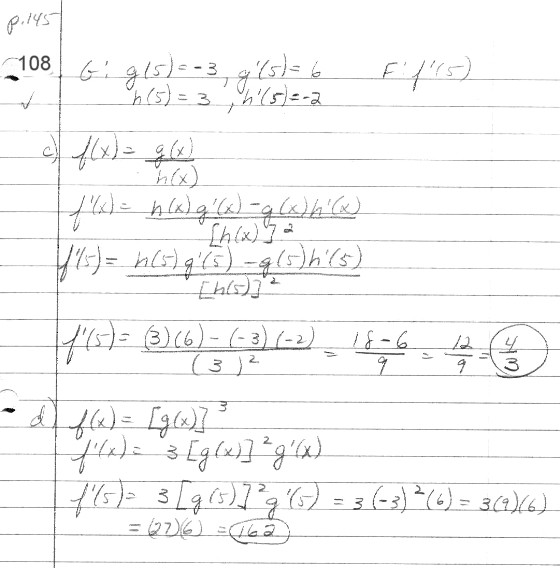 p.145
108. G: g(5) = -3, g'(5) = 6 F: f'(5)
h(5) = 3, h'(5) = -2
c) f(x) = g(x)/h(x)
f'(x) = h(x)g'(x) - g(x)h'(x)/[h(x)]²
f'(5) = h(5)g'(5) - g(5)h'(5)/[h(5)]²
f'(5) = (3)(6) - (-3)(-2)/(3)² = 18-6/9 = 12/9 = 4/3
d) f(x) = [g(x)]³
f'(x) = 3[g(x)]²g'(x)
f'(5) = 3[g(5)]²g'(5) = 3(-3)²(6) = 3(9)(6)
= (27)(6) = 162